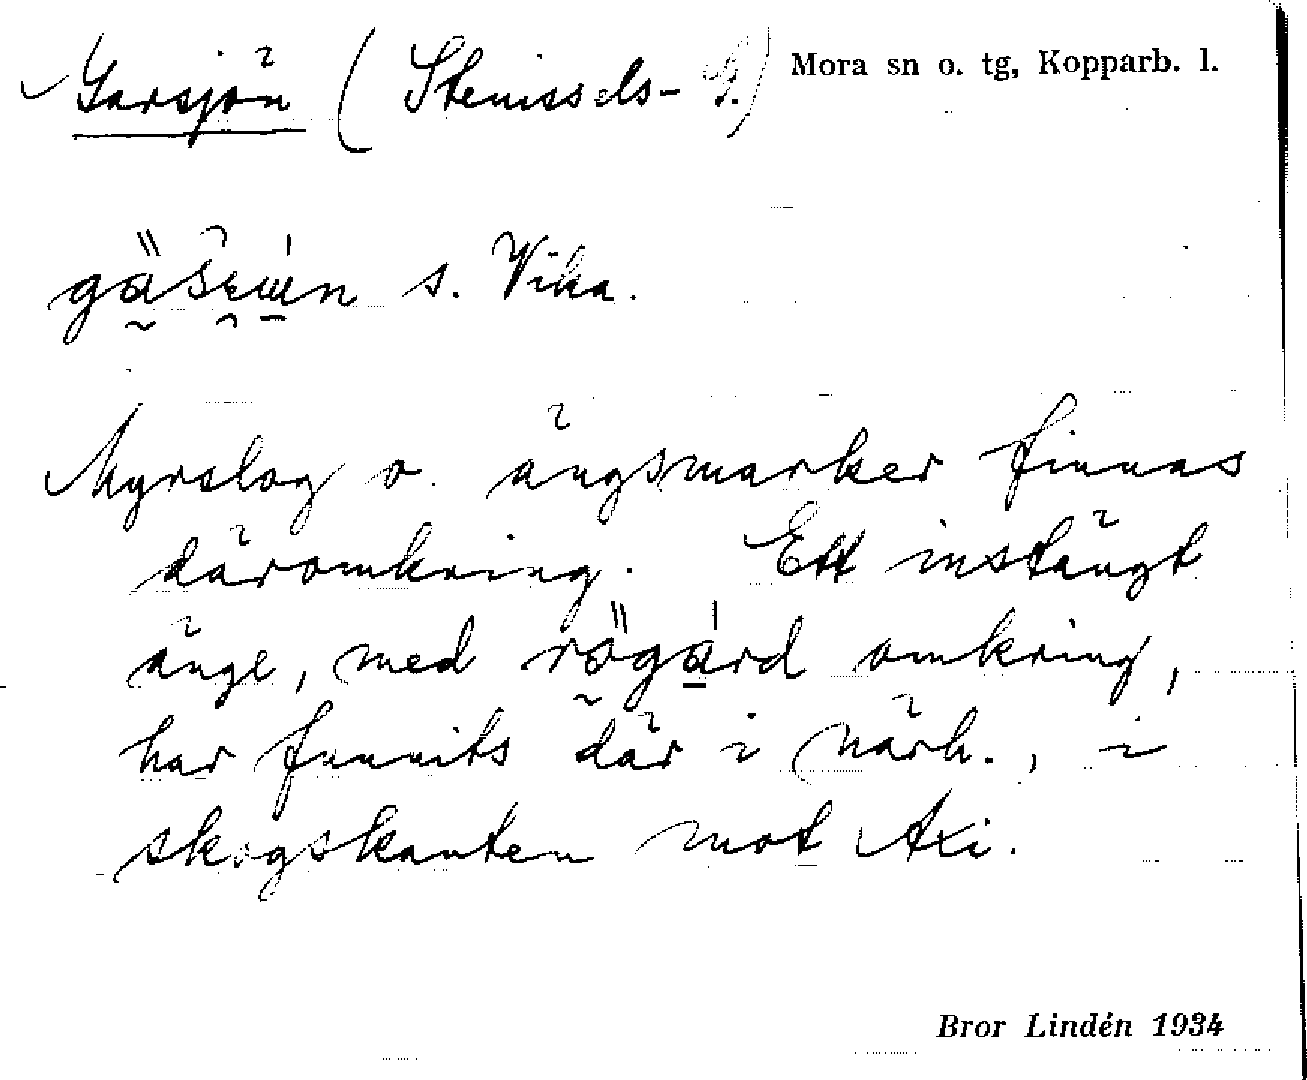 Garsjön (Stenissels-G.) Mora sn o. tg, Kopparb. l.
s. Vika.
Myrslog o. ängsmarker finnas
däromkring. Ett instängt
änge, med rögård omkring,
har funnits där i närh., i
skogskanten mot Axi.
Bror Lindén 1934